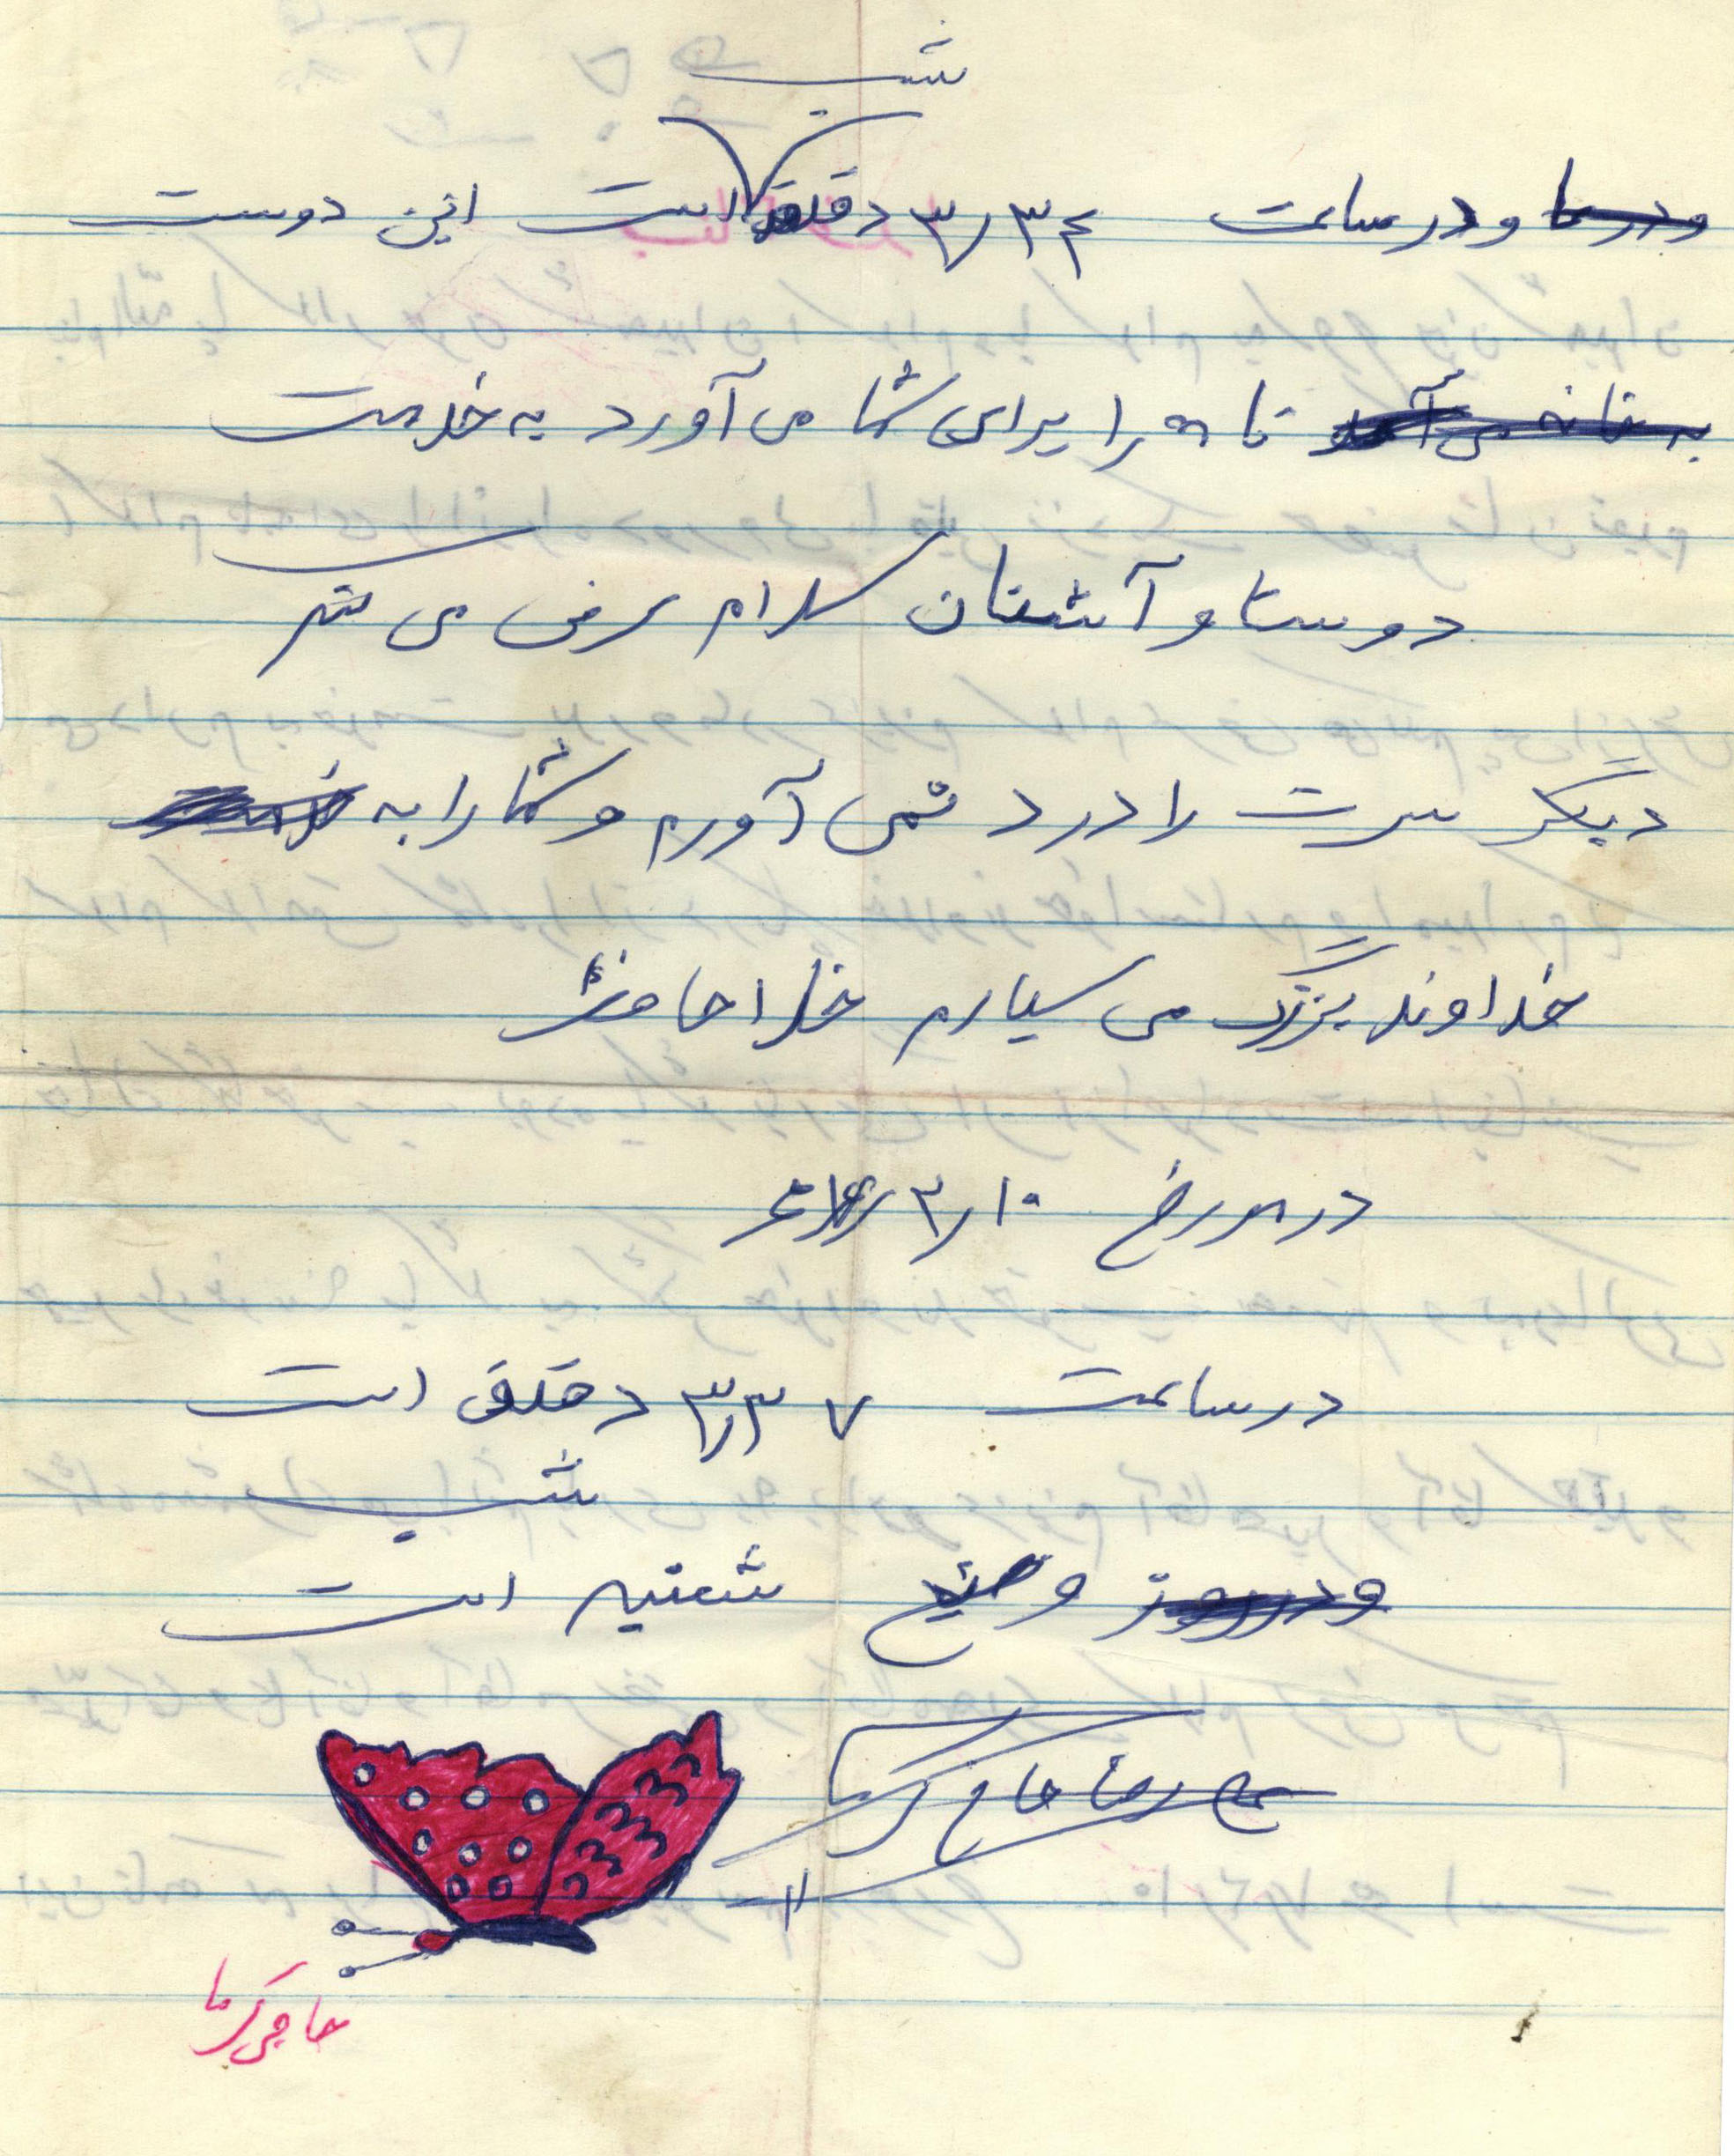 شب
و در ساعت ۳٫۳۴ دقیقه است این دوست
نامه را برای شما می آورد به خدمت
دوستا و آشنان سلام عرض می کنم
دیگر سرت را درد نمی آورم و شما را به
خداوند بزرگ می سپارم خدا حافظ
در مورخ ۱۰٫۳
در ساعت ۳٫۳۷ دقیقه است
شب
و شنبه است
رضا حاج
حاجی